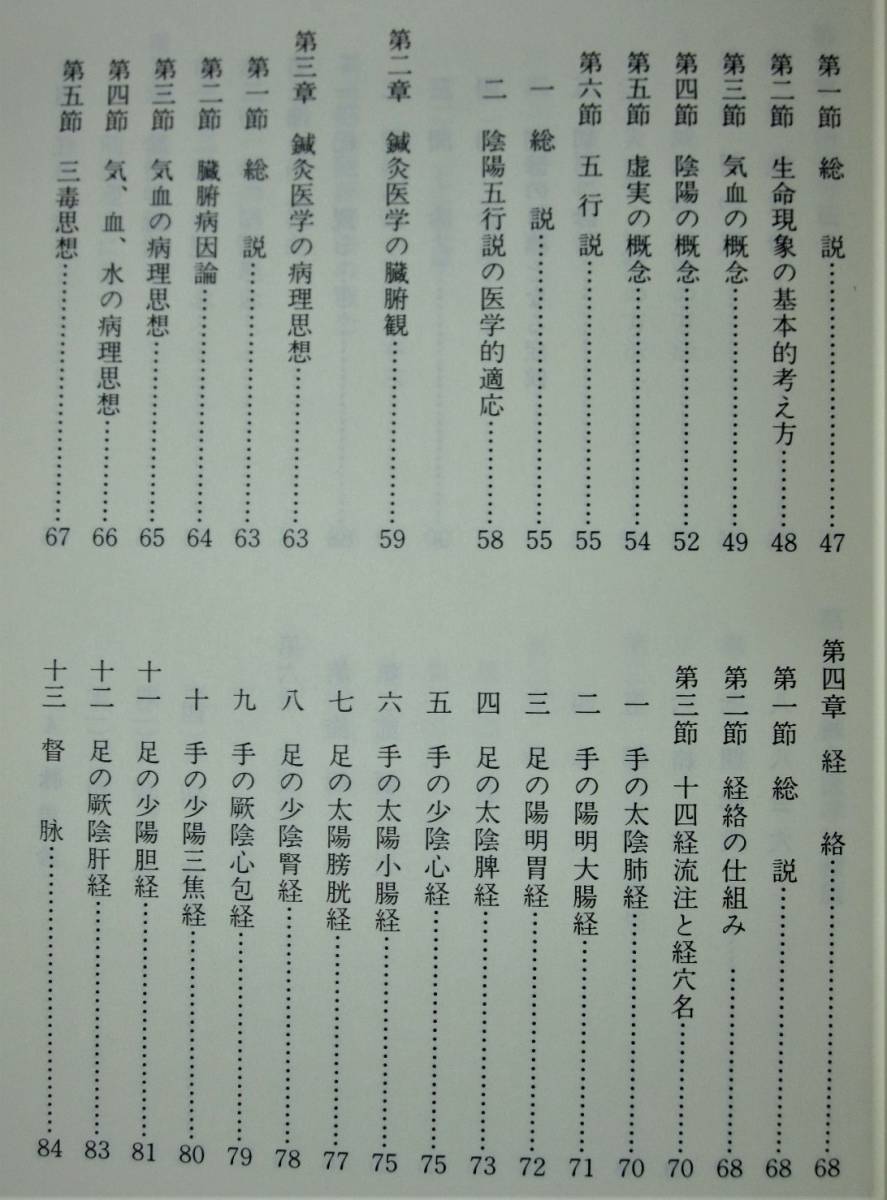 第一節 総 説…………47
第二節 生命現象の基本的考え方…………48
第三節 気血の概念…………49
第四節 陰陽の概念…………52
第五節 虚実の概念…………54
第六節 五 行 説…………55
一 総 説…………55
二 陰陽五行説の医学的適応…………58
第二章 鍼灸医学の臓腑観…………59
第三章 鍼灸医学の病理思想…………63
第一節 総 説…………63
第二節 臓腑病因論…………64
第三節 気血の病理思想…………65
第四節 気、血、水の病理思想…………66
第五節 三毒思想…………67
第四章 経 絡…………68
第一節 総 説…………68
第二節 経絡の仕組み…………68
第三節 十四経流注と経穴名…………70
一 手の太陰肺経…………70
二 手の陽明大腸経…………71
三 足の陽明胃経…………72
四 足の太陰脾経…………73
五 手の少陰心経…………75
六 手の太陽小腸経…………75
七 足の太陽膀胱経…………77
八 足の少陰腎経…………78
九 手の厥陰心包経…………79
十 手の少陽三焦経…………80
十一 足の少陽胆経…………81
十二 足の厥陰肝経…………83
十三 督 脉…………84